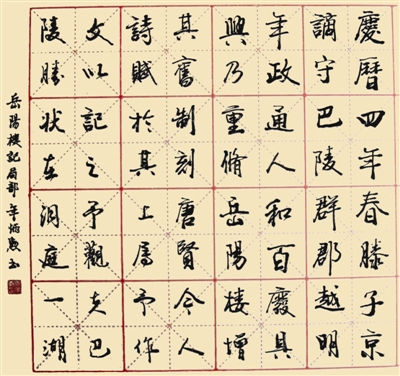 慶曆四年春滕子京
謫守巴陵群郡越明
年政通人和百廢具
興乃重脩岳陽樓增
其舊制刻唐賢今人
詩賦於其上屬予作
文以記之予觀夫巴
陵勝狀在洞庭一湖
岳陽樓記局部